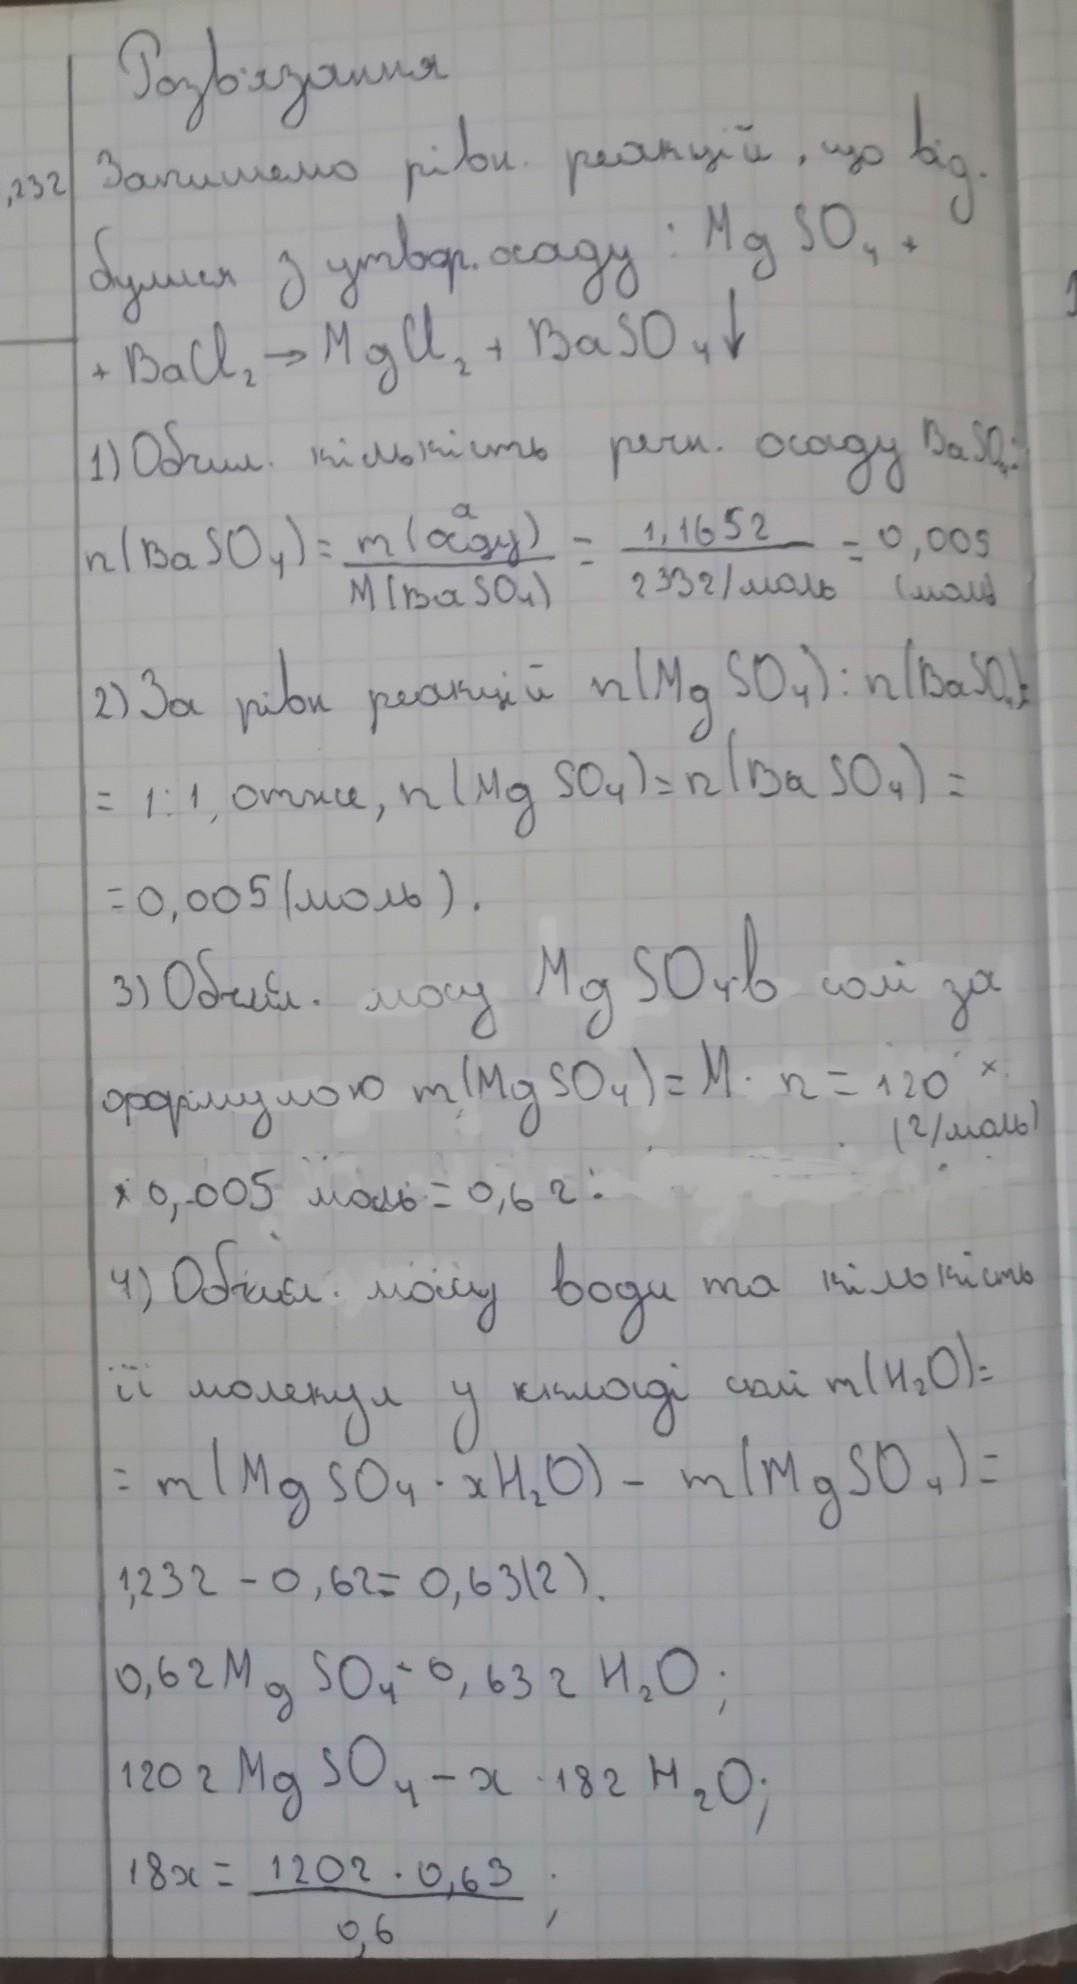 Розв'язання
,23г Запишемо рівн. реакцій, що від.
булися з утвор. осаду: MgSO₄ +
+ BaCl₂ → MgCl₂ + BaSO₄↓
1) Обчил. кількість речн. осаду BaSO₄:
n(BaSO₄) = m(осаду) / M(BaSO₄) = 1,165г / 233г/моль = 0,005 (моль)
2) За рівн реакцій n(MgSO₄) : n(BaSO₄) =
= 1:1, отже, n(MgSO₄) = n(BaSO₄) =
= 0,005 (моль).
3) Обчил. масу MgSO₄ в солі за
формулою m(MgSO₄) = M · n = 120 (г/моль) ×
× 0,005 моль = 0,6г.
4) Обчисл. масу води та кількість
її молекул у складі солі m(H₂O) =
= m(MgSO₄ · xH₂O) - m(MgSO₄) =
1,23г - 0,6г = 0,63(г).
0,6г MgSO₄ - 0,63г H₂O;
120г MgSO₄ - x · 18г H₂O;
18x = 120г · 0,63 / 0,6;